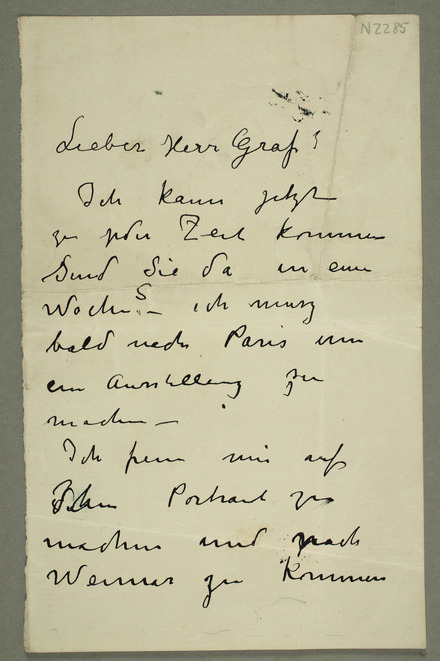 N2285
Lieber Herr Graf!
Ich kann jetzt
zu jeder Zeit kommen
Sind Sie da in eine
Woche? – ich musz
bald nach Paris um
ein Ausstellung zu
machen –
Ich freue mir auf
Ihm Portrait zu
machen und nach
Weimar zu kommen